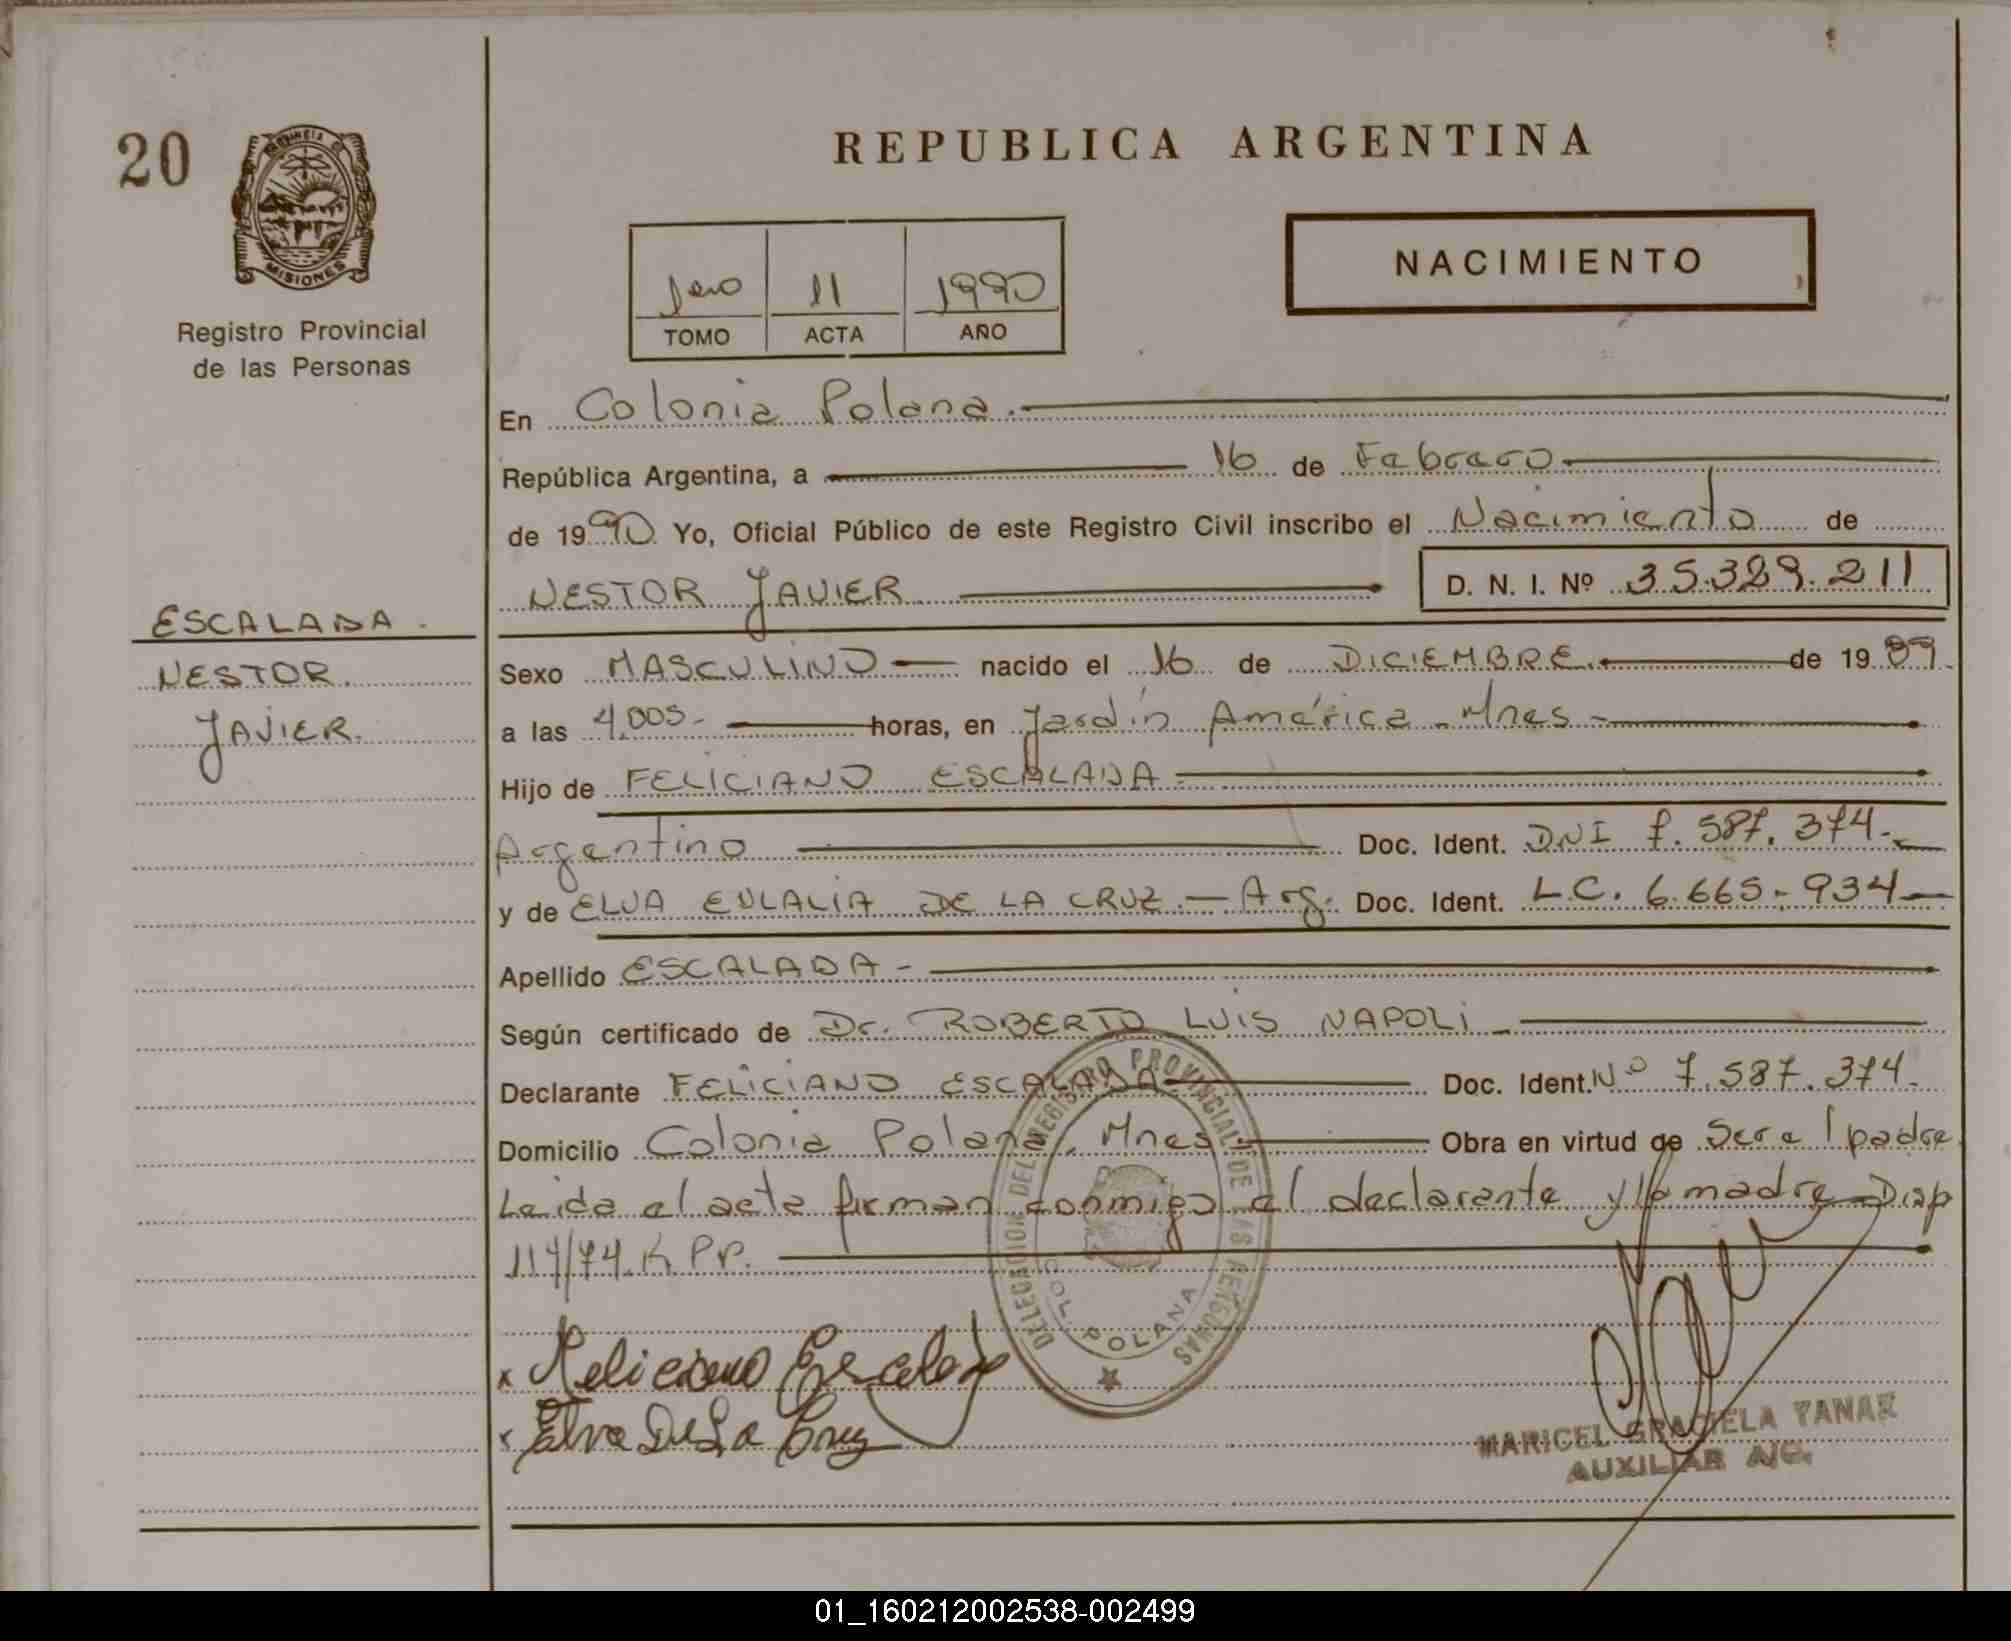 20
PROVINCIA DE
MISIONES
Registro Provincial
de las Personas
REPUBLICA ARGENTINA
1ero 11 1990
TOMO ACTA AÑO
NACIMIENTO
En Colonia Polana.
República Argentina, a 16 de Febrero
de 1990 Yo, Oficial Público de este Registro Civil inscribo el Nacimiento de
NESTOR JAVIER D. N. I. Nº 35.329.211
ESCALADA.
NESTOR.
JAVIER.
Sexo MASCULINO nacido el 16 de DICIEMBRE. de 1989
a las 4,00s. horas, en Jardín América. Mnes
Hijo de FELICIANO ESCALADA
Argentino Doc. Ident. DNI 7.587.374.
y de ELVA EULALIA DE LA CRUZ. Arg. Doc. Ident. L.C. 6.665.934
Apellido ESCALADA
Según certificado de Dr. ROBERTO LUIS NAPOLI
Declarante FELICIANO ESCALADA Doc. Ident. Nº 7.587.374.
Domicilio Colonia Polana, Mnes Obra en virtud de Ser el padre
Leida el acta firman conmigo el declarante y la madre Disp
114/74.R.P.P.
DELEGACION DEL REGISTRO PROVINCIAL DE LAS PERSONAS
COL. POLANA
x Feliciano Escalada
x Elva De La Cruz
MARICEL GRACIELA YANAK
AUXILIAR A/C.
01_160212002538-002499